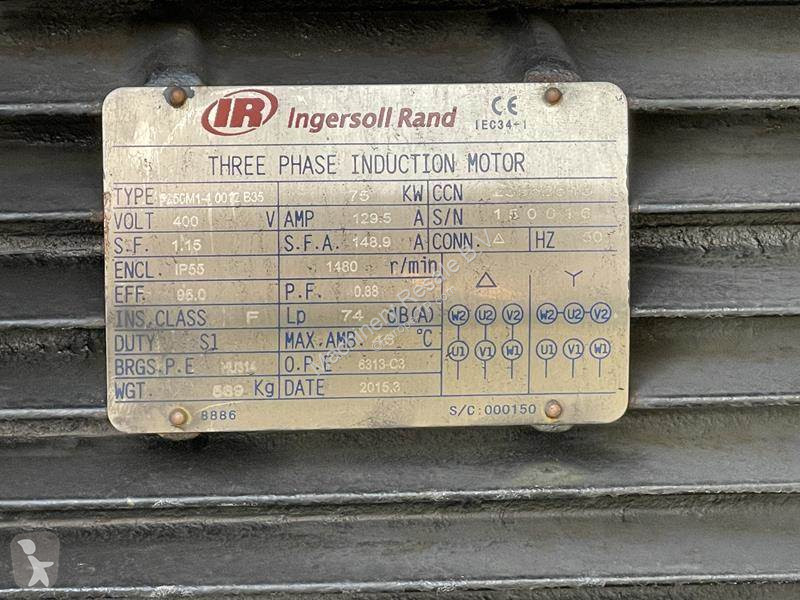 IR Ingersoll Rand CE
IEC34-1
THREE PHASE INDUCTION MOTOR
TYPE B35 75 KW CCN
VOLT 400 V AMP 129.5 A S/N
S.F. 1.15 S.F.A. 148.9 A CONN. △ HZ 50
ENCL. IP55 1480 r/min
EFF. 95.0 P.F. 0.88 △ Y
INS.CLASS F Lp 74 dB(A) W2 U2 V2 W2 U2 V2
DUTY S1 MAX.AMB. 46 °C U1 V1 W1 U1 V1 W1
BRGS.P.E NU314 O.P.E 6313-C3
WGT. Kg DATE 2015.3
8886 S/C:000150
Machinery Resale B.V.